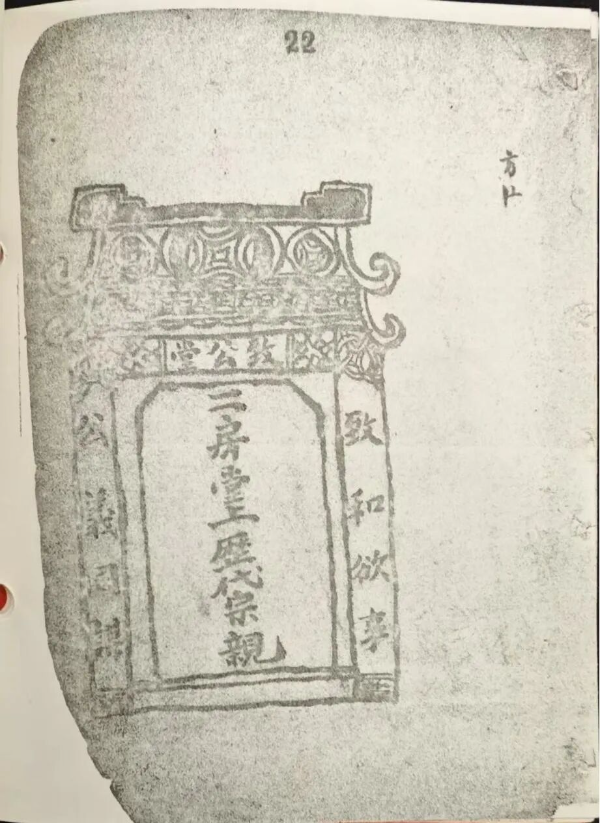 22
方
致公堂
致和欲事
二房堂上歷代宗親
公義同謀